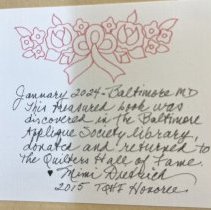 January 2024 - Baltimore MD
This treasured book was
discovered in the Baltimore
Applique Society library,
donated and returned to
The Quilters Hall of Fame.
♥ Mimi Dietrich
2015 TQHF Honoree